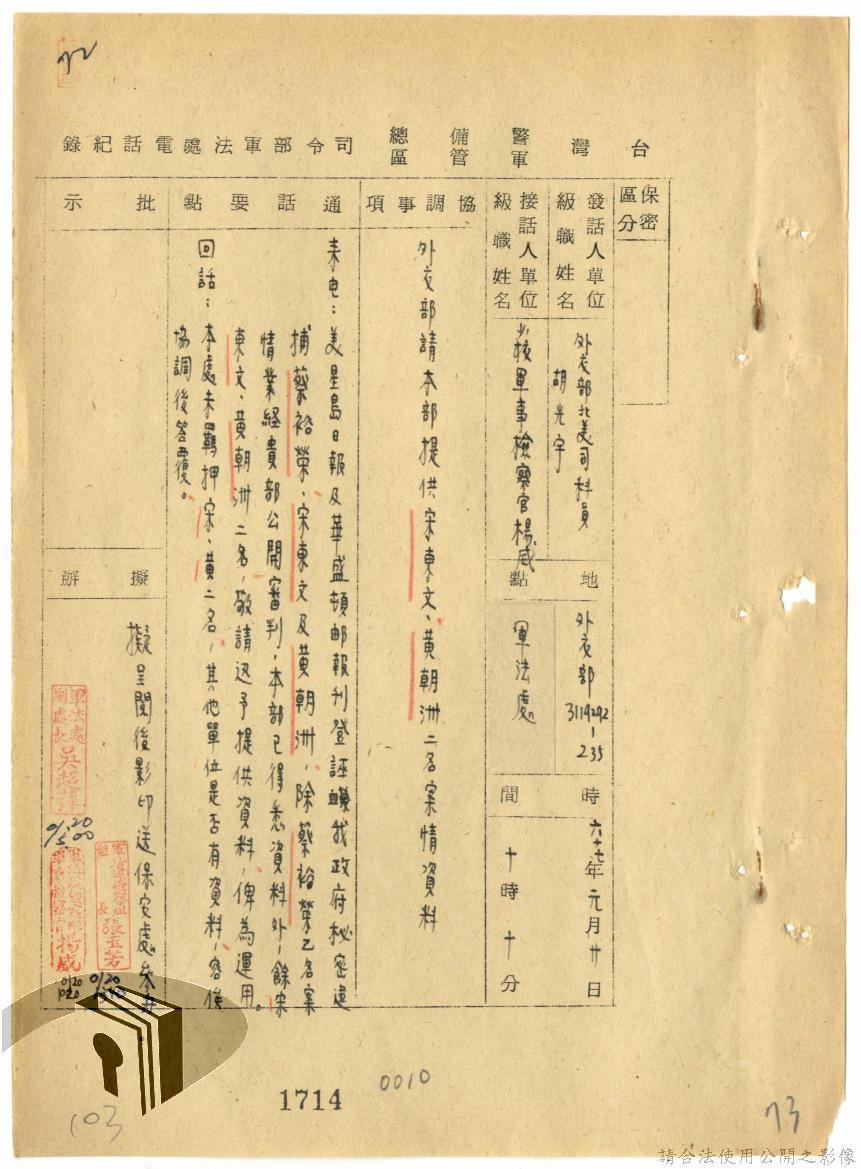 72
台灣警備總司令部軍法處電話紀錄
軍管區
保密區分
發話人單位級職姓名
外交部北美司科員
胡光宇
接話人單位級職姓名
少校軍事檢察官楊威
地點
外交部
3119292-235
軍法處
時間
六十七年元月廿日
十時十分
協調事項
外交部請本部提供宋東文、黃朝洲二名案情資料
通話要點
來电：美星島日報及華盛頓邮報刊登誣衊我政府秘密逮
捕蔡裕榮、宋東文及黃朝洲，除蔡裕榮乙名案
情業経貴部公開審判，本部已得悉資料外，餘宋
東文、黃朝洲二名，敬請迅予提供資料，俾為運用。
回話：本處未羈押宋、黃二名，其他單位是否有資料，容俟
協調後答覆。
批示
擬辦
擬呈閱後影印送保安處參辦
軍法處
副處長
張玉芳
楊威
0120
1500
0120
0120
1020
1714
0010
103
73
請合法使用公開之影像